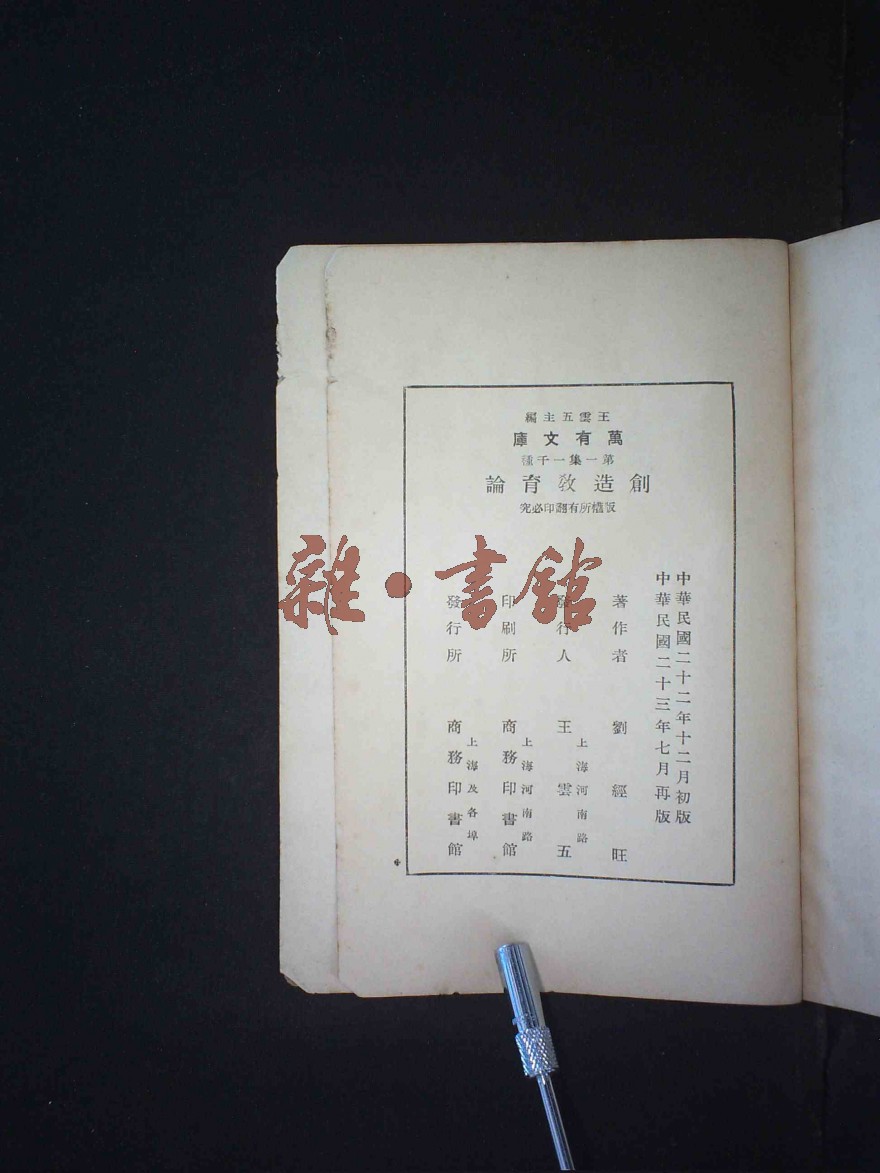 王雲五主編
萬有文庫
第一集一千種
創造教育論
版權所有翻印必究
中華民國二十二年十二月初版
中華民國二十三年七月再版
著作者 劉經旺
發行人 上海河南路 王雲五
印刷所 上海河南路 商務印書館
發行所 上海及各埠 商務印書館
雜·書館